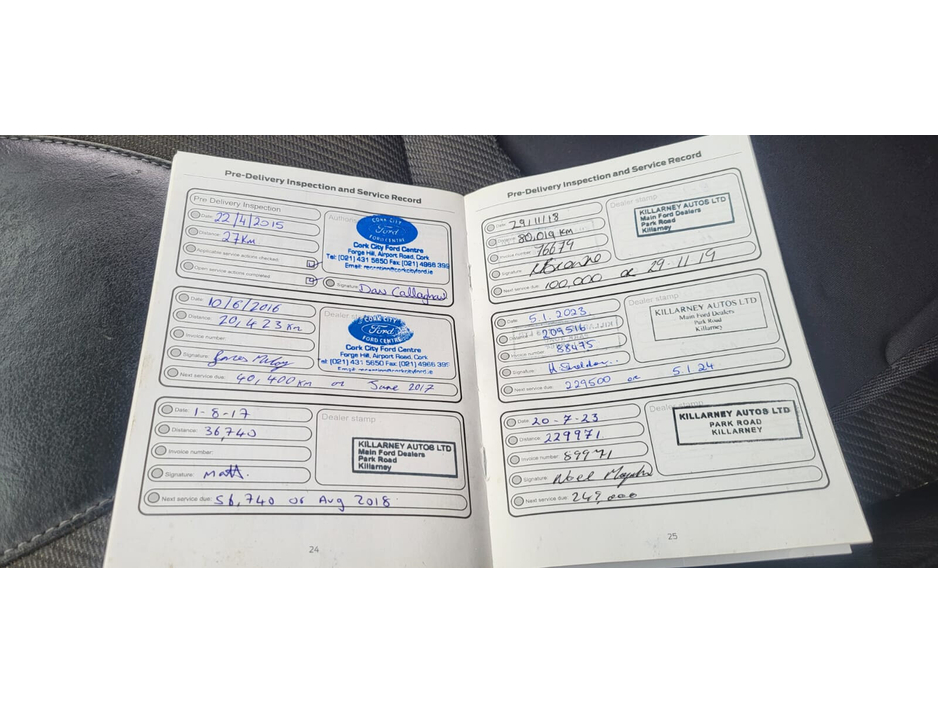 Pre-Delivery Inspection and Service Record
Pre Delivery Inspection
Date: 22/4/2015
Distance: 27KM
Applicable service actions checked:
Open service actions completed:
CORK CITY
Ford
FORD CENTRE
Cork City Ford Centre
Forge Hill, Airport Road, Cork
Tel: (021) 431 5650 Fax: (021) 4968 399
Email: reception@corkcityford.ie
Signature: Dan Callaghan
Date: 10/6/2016
Distance: 20,423 Km
Invoice number:
Signature:
Next service due: 40,400km or June 2017
Dealer stamp
CORK CITY
Ford
FORD CENTRE
Cork City Ford Centre
Forge Hill, Airport Road, Cork
Tel: (021) 431 5650 Fax: (021) 4968 399
Email: reception@corkcityford.ie
Date: 1-8-17
Distance: 36,740
Invoice number:
Signature: Matt.
Next service due: 56,740 or Aug 2018
Dealer stamp
KILLARNEY AUTOS LTD
Main Ford Dealers
Park Road
Killarney
24
Pre-Delivery Inspection and Service Record
Date: 29/11/18
Distance: 80,019 KM
Invoice number: 76679
Signature:
Next service due: 100,000 or 29.11.19
Dealer stamp
KILLARNEY AUTOS LTD
Main Ford Dealers
Park Road
Killarney
Date: 5.1.2023.
Distance: 209516
Invoice number: 88475
Signature:
Next service due: 229500 or 5.1.24
Dealer stamp
KILLARNEY AUTOS LTD
Main Ford Dealers
Park Road
Killarney
Date: 20-7-23
Distance: 229971
Invoice number: 89971
Signature: Noel
Next service due: 249,000
Dealer stamp
KILLARNEY AUTOS LTD
PARK ROAD
KILLARNEY
25